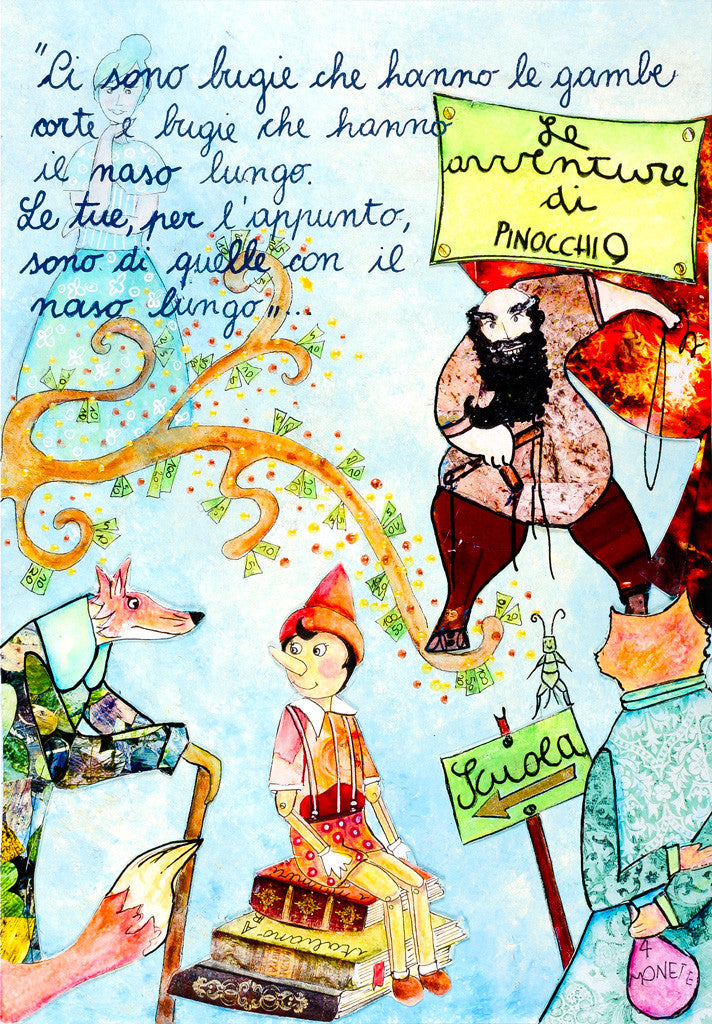 "Ci sono bugie che hanno le gambe
corte e bugie che hanno
il naso lungo.
Le tue, per l'appunto,
sono di quelle con il
naso lungo„...
Le
avventure
di
PINOCCHIO
Scuola
italiano A
4
MONETE